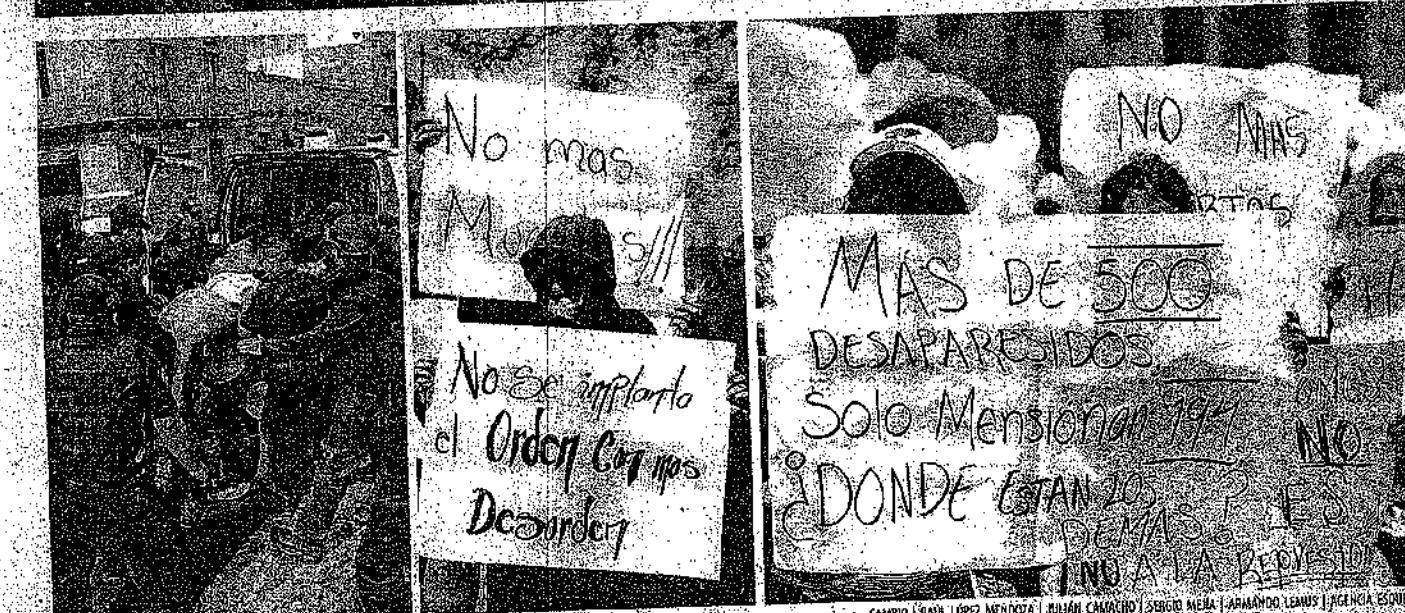 No mas
No se implanta
el Orden Con mas
Desorden
NO MAS
MAS DE 500
DESAPARESIDOS
Solo Mensionan
¿DONDE ESTAN LOS
DEMAS?
NO A LA REPRESION
NO
ES
LÓPEZ MENDOZA | JULIÁN CAMACHO | SERGIO MEJÍA | ARMANDO LEMUS | AGENCIA